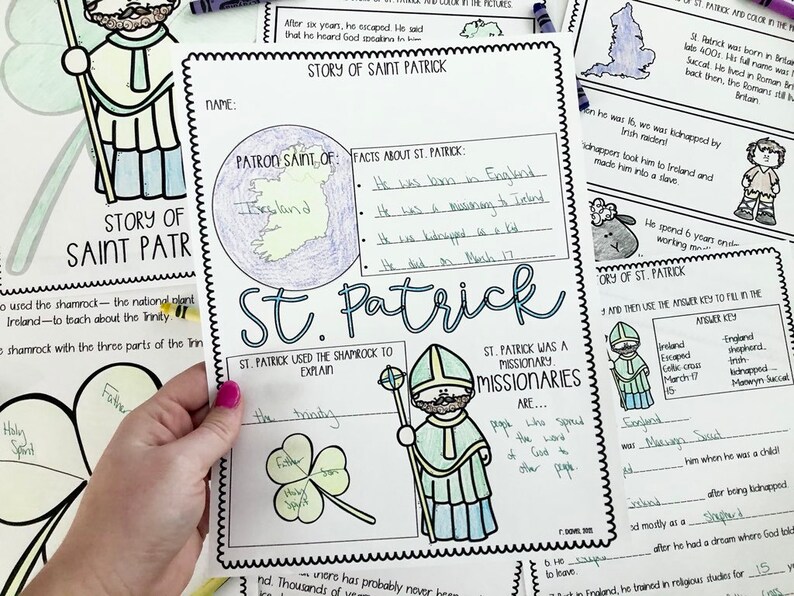 STORY OF SAINT PATRICK
NAME:
PATRON SAINT OF:
Ireland
FACTS ABOUT ST. PATRICK:
He was born in England
He was a missionary to Ireland
He was kidnapped as a kid
He died on March 17
St. Patrick
ST. PATRICK USED THE SHAMROCK TO
EXPLAIN
the trinity
Father
Son
Holy
Spirit
ST. PATRICK WAS A
MISSIONARY.
MISSIONARIES
ARE...
people who spread
the word
of God to
other people.
STORY OF
SAINT PATR
used the shamrock— the national plant
Ireland—to teach about the Trinity.
e shamrock with the three parts of the Trini
Father
Holy
Spirit
After six years, he escaped. He said
that he heard God speaking to him
OF ST. PATRICK AND COLOR IN THE PICTURES.
OF ST. PATRICK AND COLOR IN THE
St. Patrick was born in Britain
late 400s. His full name was
Succat. He lived in Roman Brit
back then, the Romans still
Britain.
hen he was 16, we was kidnapped by
Irish raiders!
kidnappers took him to Ireland and
made him into a slave.
He spend 6 years
working
STORY OF ST. PATRICK
AND THEN USE THE ANSWER KEY TO FILL IN THE
ANSWER KEY
Ireland
Escaped
Celtic cross
March 17
15
England
shepherd
Irish
kidnapped
Maewyn Succat
England
was Maewyn Succat
him when he was a child!
Ireland after being kidnapped.
ed mostly as a shepherd
6. He after he had a dream where God told
to leave.
in England, he trained in religious studies for 15
that there has probably never been
land. Thousands of years